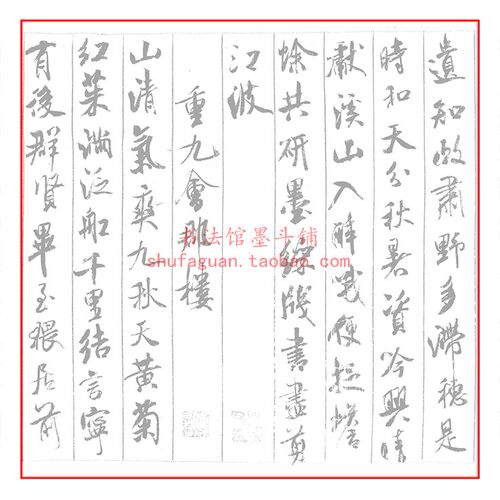 遺知政肅野多滯穗是
時和天分秋暑資吟興晴
獻溪山入醉哦便捉蟾
蜍共研墨綵牋書盡剪
江波
重九會郡樓
山清氣爽九秋天黃菊
紅茱滿泛船千里結言寧
有後群賢畢至猥居前
书法馆墨斗铺
shufaguan.taobao.com